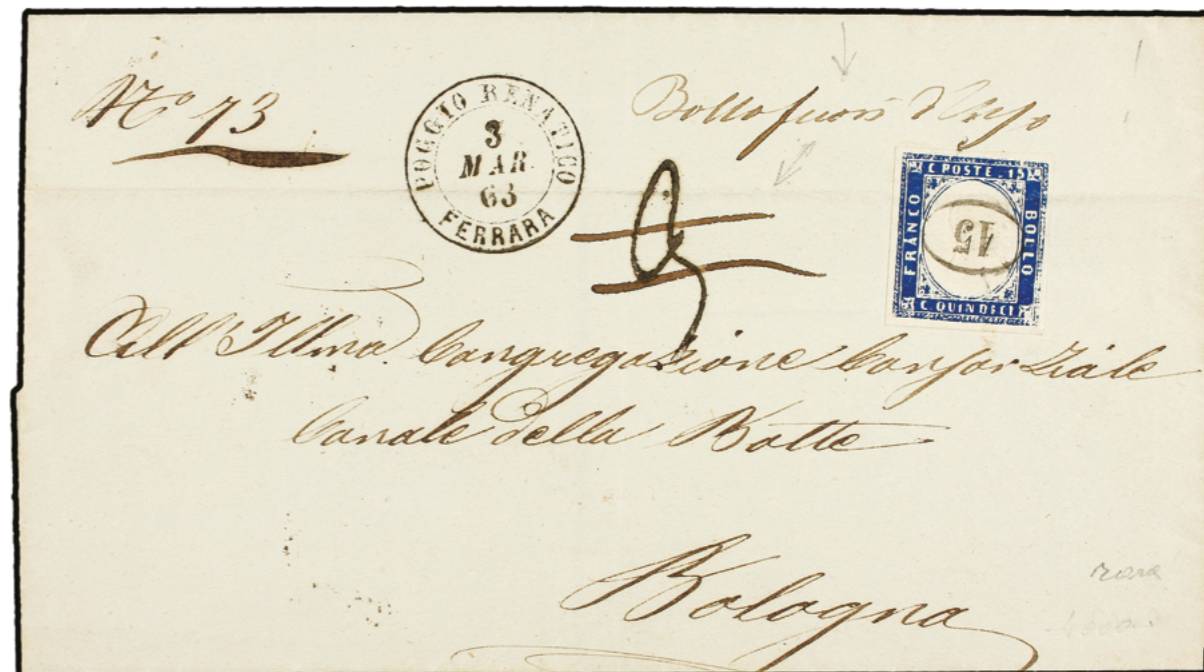 N.o 73
POGGIO RENATICO
3
MAR
63
FERRARA
Bollo fuori d'Uso
C. POSTE. 15
FRANCO
BOLLO
15
C. QUINDICI
All' Illma Congregazione Consorziale
Canale della Botte
Bologna
rara